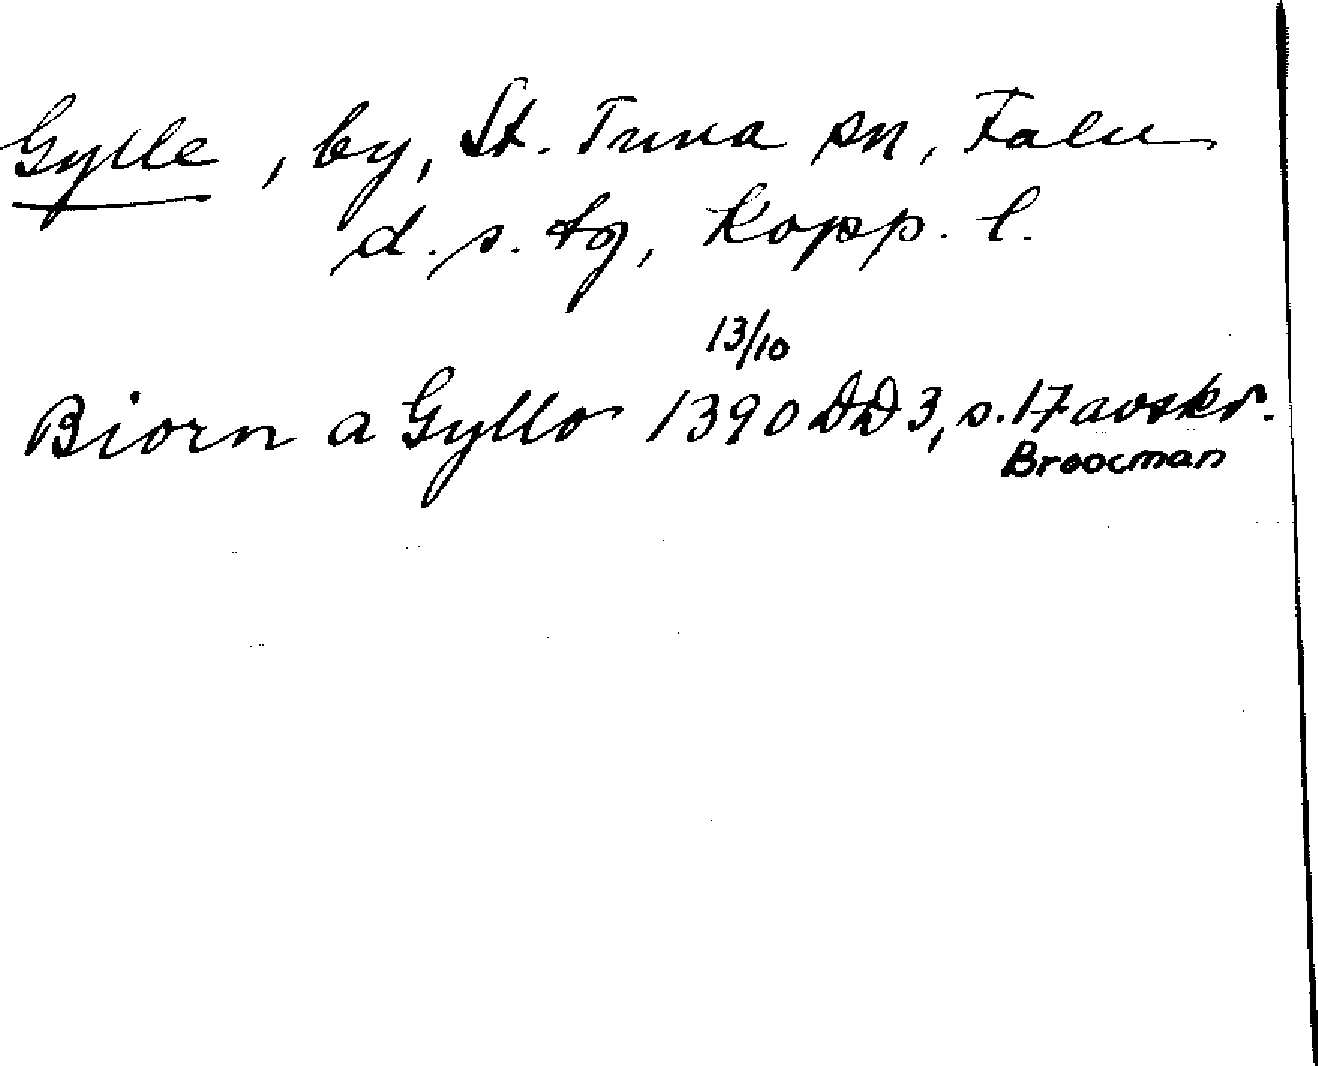 Gylle, by, St. Tuna sn, Falu
d. s. tg, Kopp. l.
13/10
Biorn a Gyllo 1390 DD 3, s. 17 avskr.
Broocman